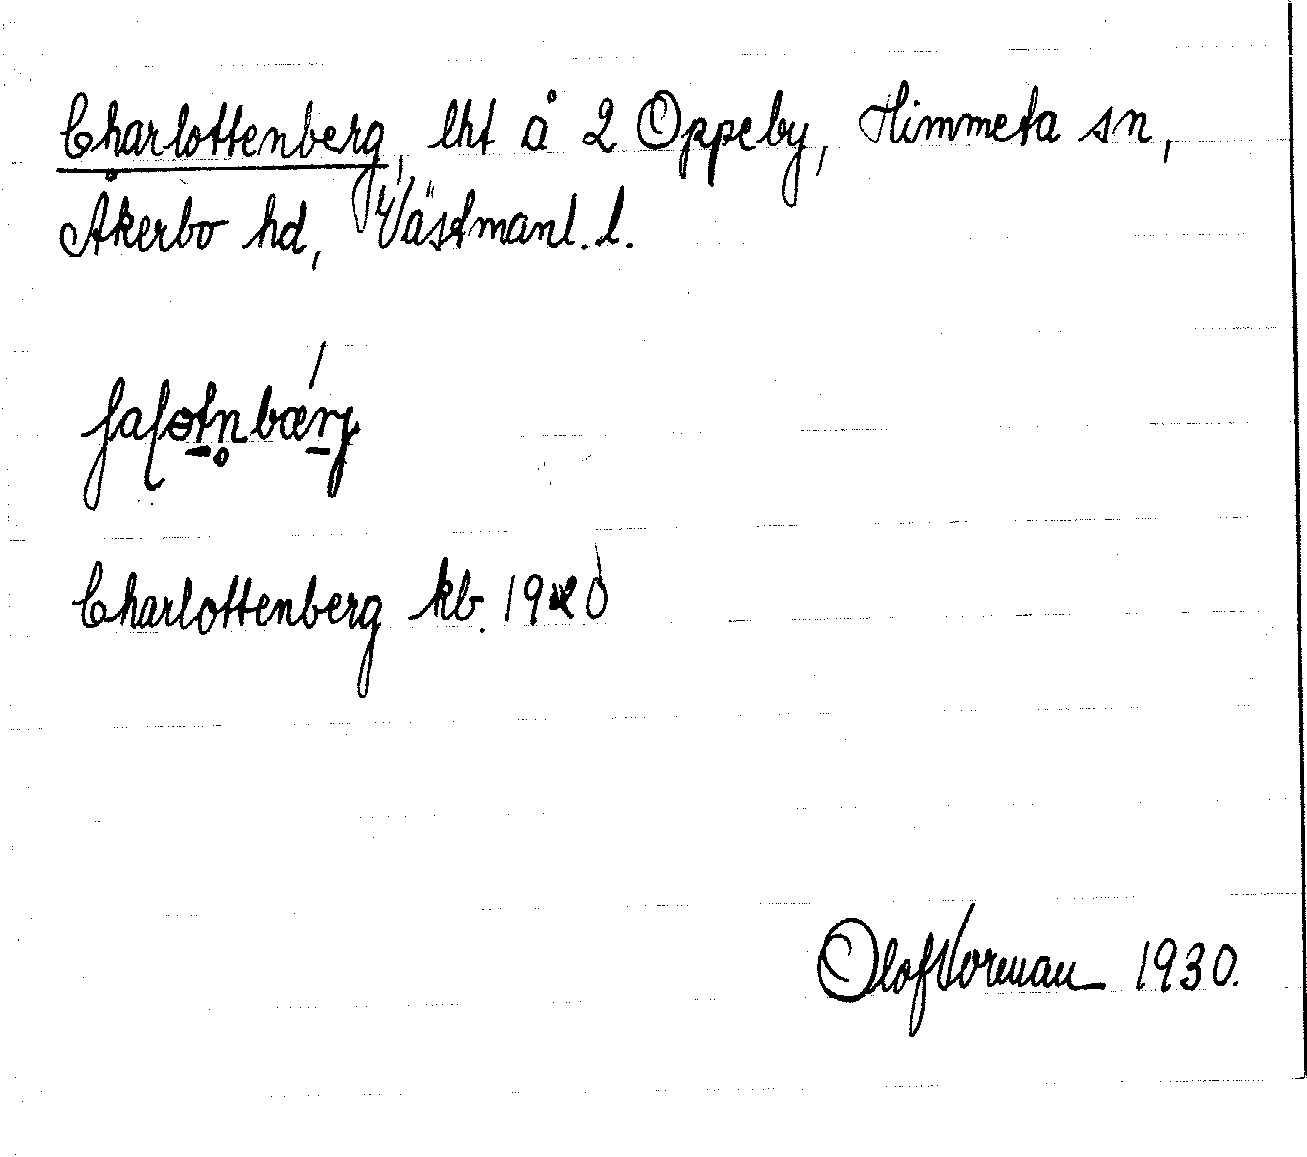 Charlottenberg, lht å 2 Oppeby, Himmeta sn,
Åkerbo hd, Västmanl. l.
Charlottenberg kb. 1920
Olof Norman 1930.